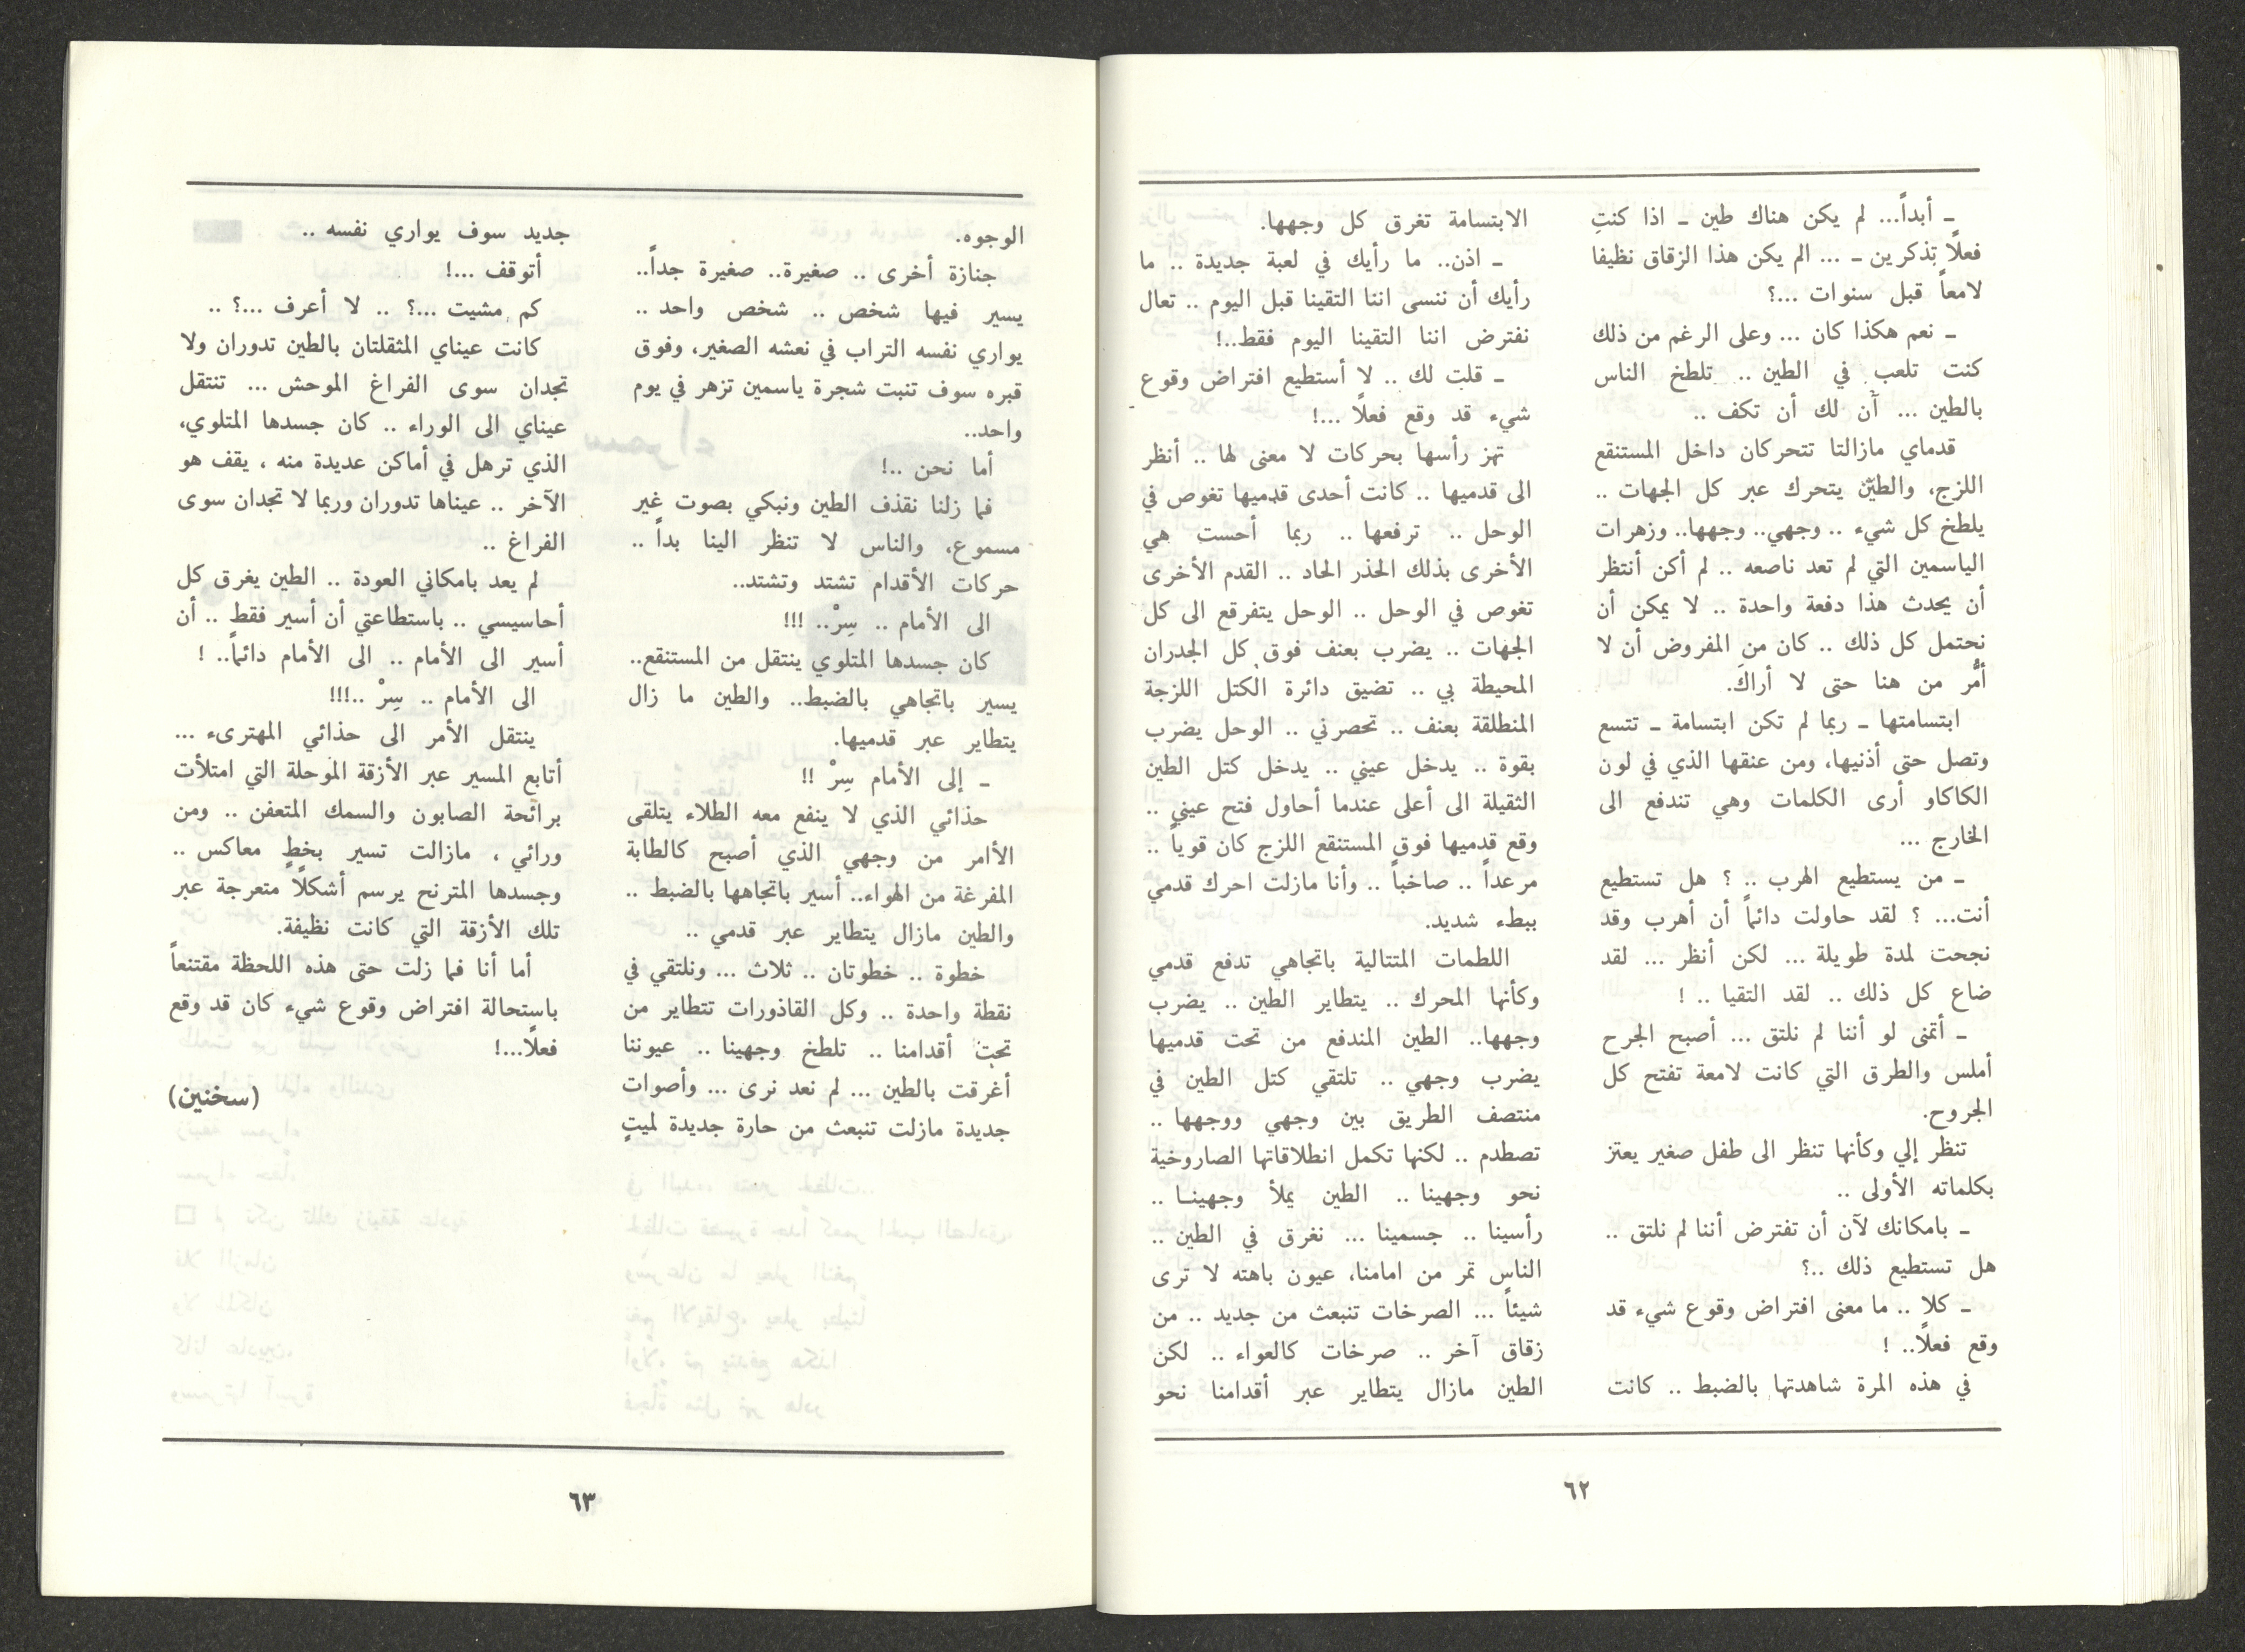 ـ أبداً... لم يكن هناك طين ـ اذا كنتِ
فعلًا تذكرين ـ ... الم يكن هذا الزقاق نظيفا
لامعاً قبل سنوات ...؟
ـ نعم هكذا كان ... وعلى الرغم من ذلك
كنت تلعب في الطين .. تلطخ الناس
بالطين ... آن لك أن تكف ..
قدماي مازالتا تتحركان داخل المستنقع
اللزج، والطين يتحرك عبر كل الجهات ..
يلطخ كل شيء .. وجهي.. وجهها.. وزهرات
الياسمين التي لم تعد ناصعه .. لم أكن أنتظر
أن يحدث هذا دفعة واحدة .. لا يمكن أن
نحتمل كل ذلك .. كان من المفروض أن لا
أمُّر من هنا حتى لا أراكَ.
ابتسامتها ـ ربما لم تكن ابتسامة ـ تتسع
وتصل حتى أذنيها، ومن عنقها الذي في لون
الكاكاو أرى الكلمات وهي تندفع الى
الخارج ...
ـ من يستطيع الهرب .. ؟ هل تستطيع
أنت... ؟ لقد حاولت دائماً أن أهرب وقد
نجحت لمدة طويلة ... لكن أنظر ... لقد
ضاع كل ذلك .. لقد التقيا .. !
ـ أتمنى لو أننا لم نلتق ... أصبح الجرح
أملس والطرق التي كانت لامعة تفتح كل
الجروح.
تنظر إلي وكأنها تنظر الى طفل صغير يعتز
بكلماته الأولى ..
ـ بامكانك لآن أن تفترض أننا لم نلتق ..
هل تستطيع ذلك ..؟
ـ كلا .. ما معنى افتراض وقوع شيء قد
وقع فعلًا.. !
في هذه المرة شاهدتها بالضبط .. كانت
الابتسامة تغرق كل وجهها.
ـ اذن.. ما رأيك في لعبة جديدة .. ما
رأيك أن ننسى اننا التقينا قبل اليوم .. تعال
نفترض اننا التقينا اليوم فقط..!
ـ قلت لك .. لا أستطيع افتراض وقوع
شيء قد وقع فعلًا ...!
تهز رأسها بحركات لا معنى لها .. أنظر
الى قدميها .. كانت أحدى قدميها تغوص في
الوحل .. ترفعها .. ربما أحست هي
الأخرى بذلك الحذر الحاد .. القدم الأخرى
تغوص في الوحل .. الوحل يتفرقع الى كل
الجهات .. يضرب بعنف فوق كل الجدران
المحيطة بي .. تضيق دائرة الكتل اللزجة
المنطلقة بعنف .. تحصرني .. الوحل يضرب
بقوة .. يدخل عيني .. يدخل كتل الطين
الثقيلة الى أعلى عندما أحاول فتح عيني ..
وقع قدميها فوق المستنقع اللزج كان قوياً ..
مرعداً .. صاخباً .. وأنا مازلت احرك قدمي
ببطء شديد.
اللطمات المتتالية باتجاهي تدفع قدمي
وكأنها المحرك .. يتطاير الطين .. يضرب
وجهها.. الطين المندفع من تحت قدميها
يضرب وجهي .. تلتقي كتل الطين في
منتصف الطريق بين وجهي ووجهها ..
تصطدم .. لكنها تكمل انطلاقاتها الصاروخية
نحو وجهينا .. الطين يملأ وجهينـا ..
رأسينا .. جسمينا ... نغرق في الطين ..
الناس تمر من امامنا، عيون باهته لا ترى
شيئاً ... الصرخات تنبعث من جديد .. من
زقاق آخر .. صرخات كالعواء .. لكن
الطين مازال يتطاير عبر أقدامنا نحو
٦٢
الوجوه.
جنازة أخرى .. صغيرة.. صغيرة جداً..
يسير فيها شخص .. شخص واحد ..
يواري نفسه التراب في نعشه الصغير، وفوق
قبره سوف تنبت شجرة ياسمين تزهر في يوم
واحد..
أما نحن ..!
فما زلنا نقذف الطين ونبكي بصوت غير
مسموع، والناس لا تنظر الينا بداً ..
حركات الأقدام تشتد وتشتد..
الى الأمام .. سِرْ.. !!!
كان جسدها المتلوي ينتقل من المستنقع..
يسير باتجاهي بالضبط.. والطين ما زال
يتطاير عبر قدميها.
ـ إلى الأمام سِرْ !!
حذائي الذي لا ينفع معه الطلاء يتلقى
الأامر من وجهي الذي أصبح كالطابة
المفرغة من الهواء.. أسير باتجاهها بالضبط ..
والطين مازال يتطاير عبر قدمي ..
خطوة .. خطوتان .. ثلاث ... ونلتقي في
نقطة واحدة .. وكل القاذورات تتطاير من
تحت أقدامنا .. تلطخ وجهينا .. عيوننا
أغرقت بالطين ... لم نعد نرى ... وأصوات
جديدة مازلت تنبعث من حارة جديدة لميتٍ
جديد سوف يواري نفسه ..
أتوقف ...!
كم مشيت ...؟ .. لا أعرف ...؟ ..
كانت عيناي المثقلتان بالطين تدوران ولا
تجدان سوى الفراغ الموحش ... تنتقل
عيناي الى الوراء .. كان جسدها المتلوي،
الذي ترهل في أماكن عديدة منه ، يقف هو
الآخر .. عيناها تدوران وربما لا تجدان سوى
الفراغ ..
لم يعد بامكاني العودة .. الطين يغرق كل
أحاسيسي .. باستطاعتي أن أسير فقط .. أن
أسير الى الأمام .. الى الأمام دائماً.. !
الى الأمام .. سِرْ ..!!!
ينتقل الأمر الى حذائي المهترىء ...
أتابع المسير عبر الأزقة الموحلة التي امتلأت
برائحة الصابون والسمك المتعفن .. ومن
ورائي ، مازالت تسير بخطٍ معاكس ..
وجسدها المترنح يرسم أشكلًا متعرجة عبر
تلك الأزقة التي كانت نظيفة.
أما أنا فما زلت حتى هذه اللحظة مقتنعاً
باستحالة افتراض وقوع شيء كان قد وقع
فعلًا...!
(سخنين)
٦٣